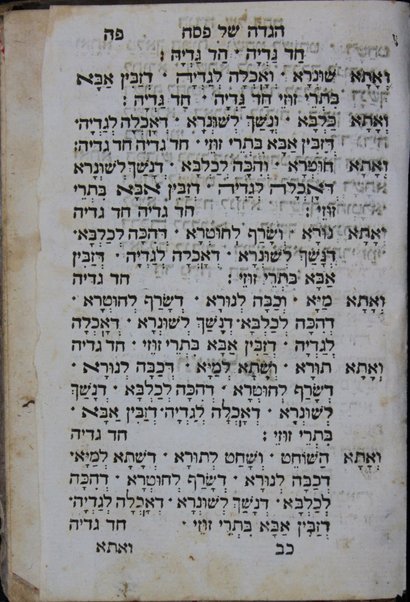 הגדה של פסח פה
חַד גַּדְיָה · חַד גַּדְיָה :
וְאָתָא שׁוּנְרָא · וְאָכְלָה לְגַדְיָה · דְזַבִּין אַבָּא
בִּתְרֵי זוּזֵי חַד גַּדְיָה · חַד גַּדְיָה :
וְאָתָא כַלְבָּא · וְנָשַׁךְ לְשׁוּנְרָא · דְאָכְלָה לְגַדְיָה·
דְזַבִּין אַבָּא בִּתְרֵי זוּזֵי · חד גדיה חד גדיה:
וְאָתָא חוּטְרָא · וְהִכָּה לְכַלְבָּא · דְנָשַׁךְ לְשׁוּנְרָא
דְאָכְלָה לְגַדְיָה · דְזַבִּין אַבָּא בִּתְרֵי
זוּזֵי : חד גדיה חד גדיה
וְאָתָא נוּרָא · וְשָׂרַף לְחוּטְרָא · דְהִכָּה לְכַלְבָּא·
דְנָשַׁךְ לְשׁוּנְרָא · דְאָכְלָה לְגַדְיָה · דְזַבִּין
אַבָּא בִּתְרֵי זוּזֵי · חד גדיה
וְאָתָא מַיָּא · וְכָבָה לְנוּרָא · דְשָׂרַף לְחוּטְרָא ·
דְהִכָּה לְכַלְבָּא· דְנָשַׁךְ לְשׁוּנְרָא · דְאָכְלָה
לְגַדְיָה · דְזַבִּין אַבָּא בִּתְרֵי זוּזֵי · חד גדיה
וְאָתָא תוֹרָא · וְשָׁתָא לְמַיָּא · דְכָבָה לְנוּרָא ·
דְשָׂרַף לְחוּטְרָא · דְהִכָּה לְכַלְבָּא · דְנָשַׁךְ
לְשׁוּנְרָא · דְאָכְלָה לְגַדְיָה· דְזַבִּין אַבָּא ·
בִּתְרֵי זוּזֵי : חד גדיה
וְאָתָא הַשּׁוֹחֵט · וְשָׁחַט לְתוֹרָא · דְשָׁתָא לְמַיָּא·
דְכָבָה לְנוּרָא · דְשָׂרַף לְחוּטְרָא · דְהִכָּה
לְכַלְבָּא · דְנָשַׁךְ לְשׁוּנְרָא · דְאָכְלָה לְגַדְיָה·
דְזַבִּין אַבָּא בִּתְרֵי זוּזֵי · חד גדיה
כב ואתא